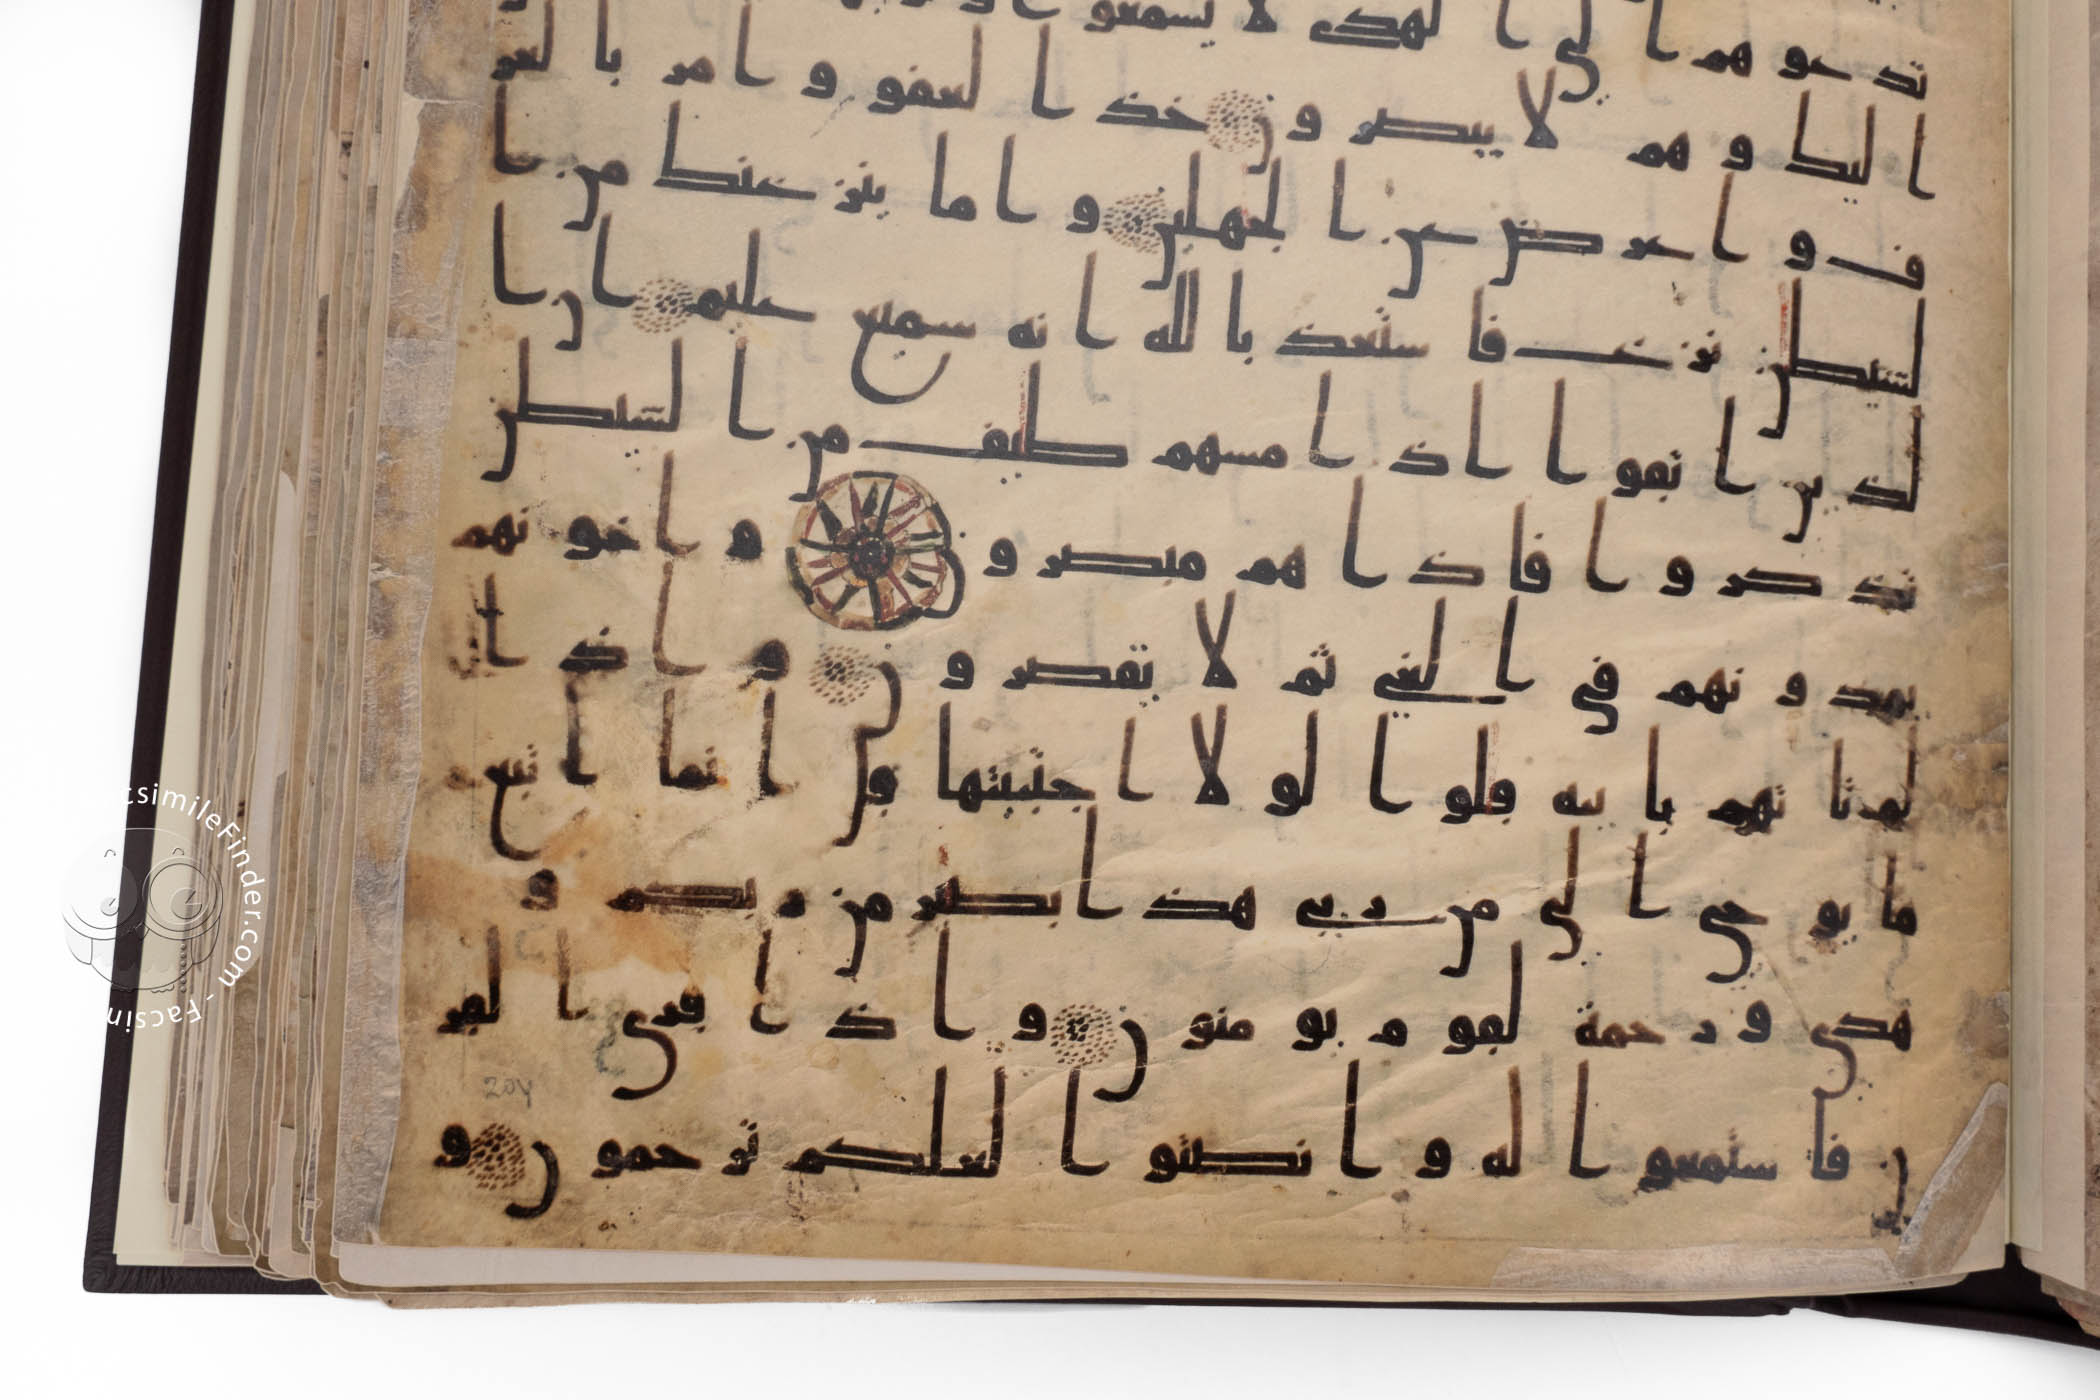 تدعوهم الى الهدى لا يسمعوا و
اليك وهم لا يبصرون خذ العفو وامر بالعر
ف واعرض عن الجهلين واما ينزغنك من ا
لشيطن نزغ فاستعذ بالله انه سميع عليم ان ا
لذين اتقوا اذا مسهم طيف من الشيطن
تذكروا فاذا هم مبصرون واخونهم
يمدونهم في الغي ثم لا يقصرون واذا
لم تاتهم باية قلوا لولا اجتبيتها قل انما اتبع
ما يوحى الى من ربي هذا بصر من ربكم و
هدى ورحمة لقوم يومنون واذا قرى القر
ن فاستمعوا له وانصتوا لعلكم ترحمون و
204
FacsimileFinder.com - Facsim